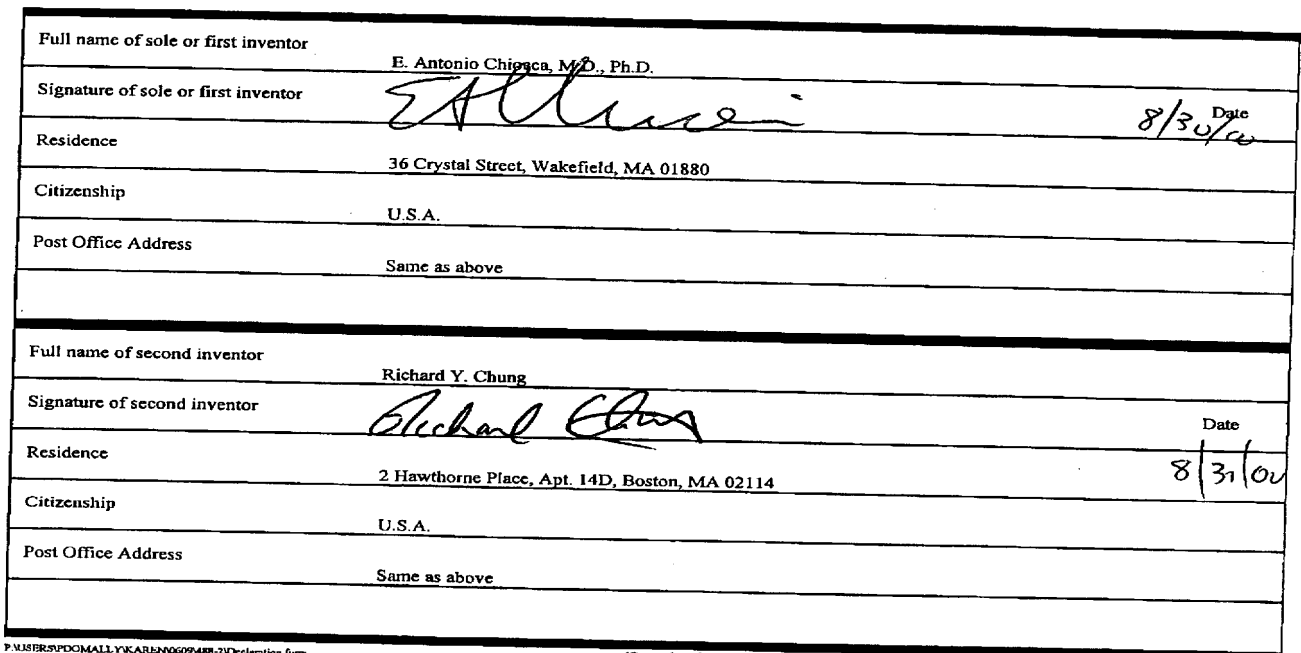 Full name of sole or first inventor
E. Antonio Chiocca, M.D., Ph.D.
Signature of sole or first inventor
Date
8/30/00
Residence
36 Crystal Street, Wakefield, MA 01880
Citizenship
U.S.A.
Post Office Address
Same as above
Full name of second inventor
Richard Y. Chung
Signature of second inventor
Richard Chung
Date
8/31/00
Residence
2 Hawthorne Place, Apt. 14D, Boston, MA 02114
Citizenship
U.S.A.
Post Office Address
Same as above
P:\USERS\PDOMALLY\KAREN\0609\488-2\Declaration form